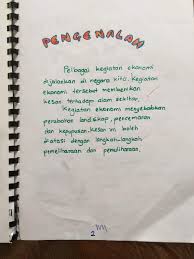 PENGENALAN
Pelbagai kegiatan ekonomi
dijalankan di negara kita. Kegiatan
ekonomi tersebut memberikan
kesan terhadap alam sekitar.
Kegiatan ekonomi menyebabkan
perubahan landskap, pencemaran
dan kepupusan. Kesan ini boleh
diatasi dengan langkah-langkah
pemeliharaan dan pemuliharaan.
2